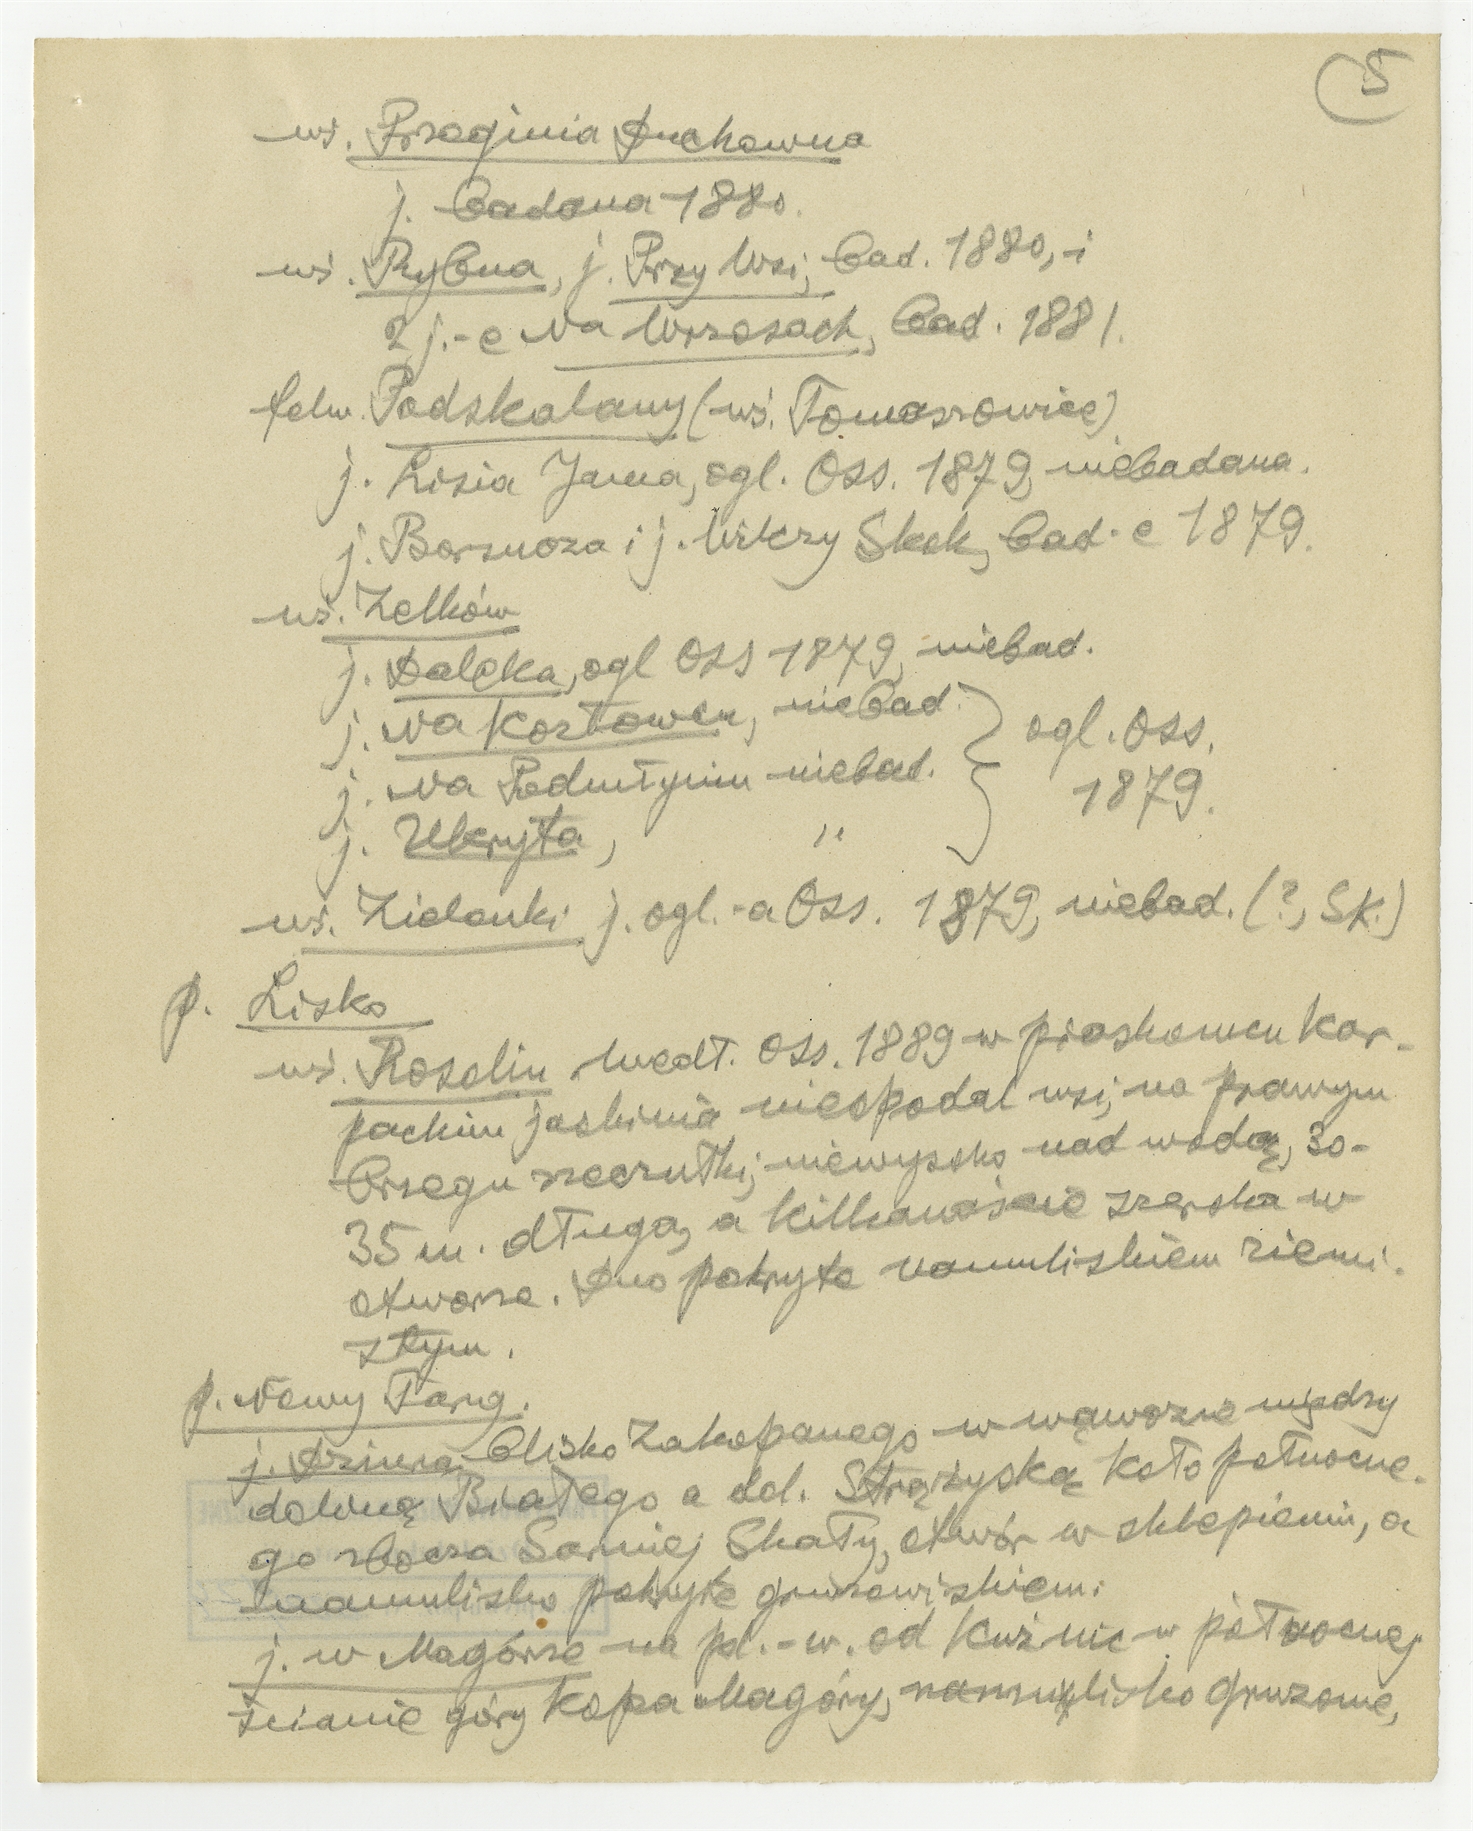 5
wś. Przeginia Duchowna
j. badana 1880.
wś. Rybna, j. Przy Wsi, bad. 1880, i
2 j.-e Na Wrzosach, bad. 1881.
folw. Podskalany (wś. Tomaszowice)
j. Lisia Jama, ogl. Oss. 1879, niebadana.
j. Borsucza i j. Wilczy Skok, bad.-e 1879.
wś. Zelków
j. Daleka, ogl Oss 1879, niebad.
j. Na Kozłowcu, niebad. ogl. Oss.
j. Na niebad. 1879.
j. Ukryta, "
wś. Zielonki j. ogl.-a Oss. 1879, niebad. (?, SK.)
p. Lisko
wś. Rosolin. Wedł. Oss. 1889 w piaskowcu kar-
packim jaskinia nieopodal wsi, na prawym
brzegu rzeczułki, niewysoko nad wodą, 30-
35 m. długa, a kilkanaście szeroka w
otworze. Dno pokryte namuliskiem ziemi-
stym.
p. Nowy Targ.
j. Dziura, blisko Zakopanego w wąwozie między
doliną Białego a dol. Strążyską koło północne-
go zbocza Sarniej Skały, otwór w sklepieniu, a
namulisko pokryte gruzowiskiem.
j. w Magórze na pd.-w. od Kuźnic w północnej
ścianie góry Kopa Magóry, namulisko gruzowe,